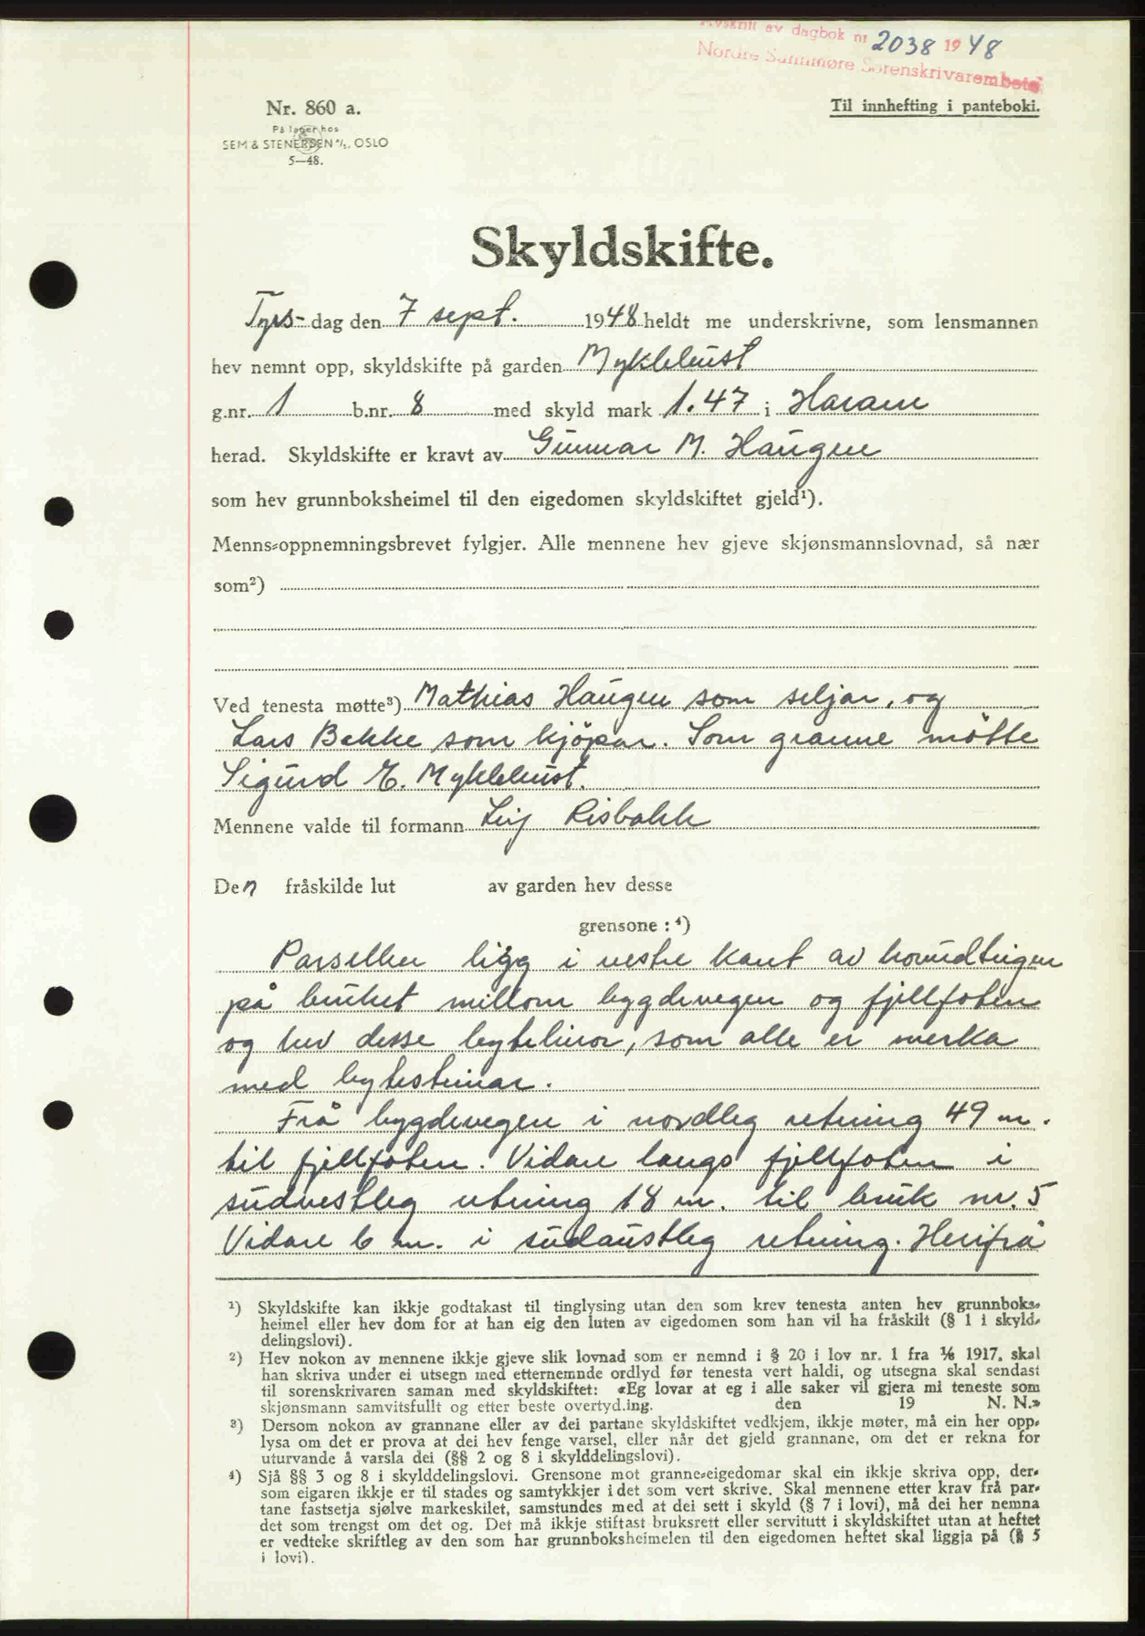 Avskrift av dagbok nr 2038 1948
Nordre Sunnmøre Sorenskrivarembete
Nr. 860 a.
På lager hos
SEM & STENERSEN A/S, OSLO
5—48.
Til innhefting i panteboki.
Skyldskifte.
Tyrs-dag den 7 sept. 1948 heldt me underskrivne, som lensmannen
hev nemnt opp, skyldskifte på garden Myklebust
g.nr. 1 b.nr. 8 med skyld mark 1.47 i Haram
herad. Skyldskifte er kravt av Gunnar M. Haugen
som hev grunnboksheimel til den eigedomen skyldskiftet gjeld¹).
Menns-oppnemningsbrevet fylgjer. Alle mennene hev gjeve skjønsmannslovnad, så nær
som²)
Ved tenesta møtte³) Mathias Haugen som seljar, og
Lars Bakke som kjöpar. Som granne mötte
Sigurd E. Myklebust.
Mennene valde til formann Leif Risbakk
Den fråskilde lut av garden hev desse
grensone : ⁴)
Parsellen ligg i vestre kant av hovudteigen
på bruket millom bygdevegen og fjellfoten
og hev desse bytelinor, som alle er merka
med bytesteinar.
Frå bygdevegen i nordleg retning 49 m.
til fjellfoten. Vidare langs fjellfoten i
südvestleg retning 18 m. til bruk nr. 5
Vidare 6 m. i südaustleg retning. Herifrå
¹) Skyldskifte kan ikkje godtakast til tinglysing utan den som krev tenesta anten hev grunnboks-
heimel eller hev dom for at han eig den luten av eigedomen som han vil ha fråskilt (§ 1 i skyld-
delingslovi).
²) Hev nokon av mennene ikkje gjeve slik lovnad som er nemnd i § 20 i lov nr. 1 fra 1/6 1917, skal
han skriva under ei utsegn med etternemnde ordlyd før tenesta vert haldi, og utsegna skal sendast
til sorenskrivaren saman med skyldskiftet: «Eg lovar at eg i alle saker vil gjera mi teneste som
skjønsmann samvitsfullt og etter beste overtyd.ing. den 19 N. N.»
³) Dersom nokon av grannane eller av dei partane skyldskiftet vedkjem, ikkje møter, må ein her opp-
lysa om det er prova at dei hev fenge varsel, eller når det gjeld grannane, om det er rekna for
uturvande å varsla dei (§§ 2 og 8 i skylddelingslovi).
⁴) Sjå §§ 3 og 8 i skylddelingslovi. Grensone mot granne-eigedomar skal ein ikkje skriva opp, der-
som eigaren ikkje er til stades og samtykkjer i det som vert skrive. Skal mennene etter krav frå par-
tane fastsetja sjølve markeskilet, samstundes med at dei sett i skyld (§ 7 i lovi), må dei her nemna
det som trengst om det og. Det må ikkje stiftast bruksrett eller servitutt i skyldskiftet utan at heftet
er vedteke skriftleg av den som har grunnboksheimelen til den eigedomen heftet skal liggja på (§ 5
i lovi).